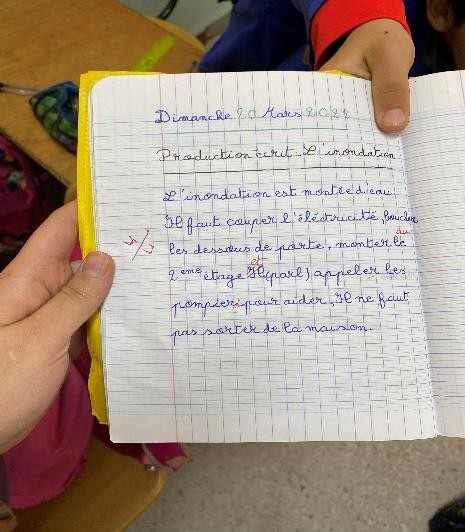 Dimanche 20 Mars 2022
Production écrit. L'inondation
L'inondation est montée d'eau.
Il faut couper l'éléctricité, boucher
du
les dessous de porte, monter le
et
2eme étage Il (parl) appeler les
pompiers pour aider, Il ne faut
pas sorter de la maison.